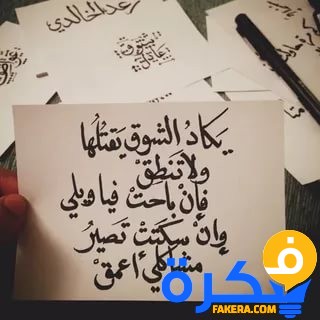 رعد الخالدي
يَكادُ الشوق يَقتُلُها
ولا تَنطِقْ
فإنْ باحتْ فيا ويلي
وإنْ سكتتْ تَصيرُ
مشاكلي أعمقْ
فكرة
FAKERA.COM